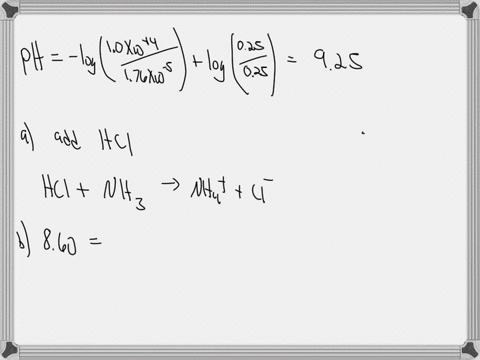 pH = -log(1.0×10⁺⁴/1.76×10⁻⁵) + log(0.25/0.25) = 9.25
a) add HCl
HCl + NH₃ → NH₄⁺ + Cl⁻
b) 8.60 =